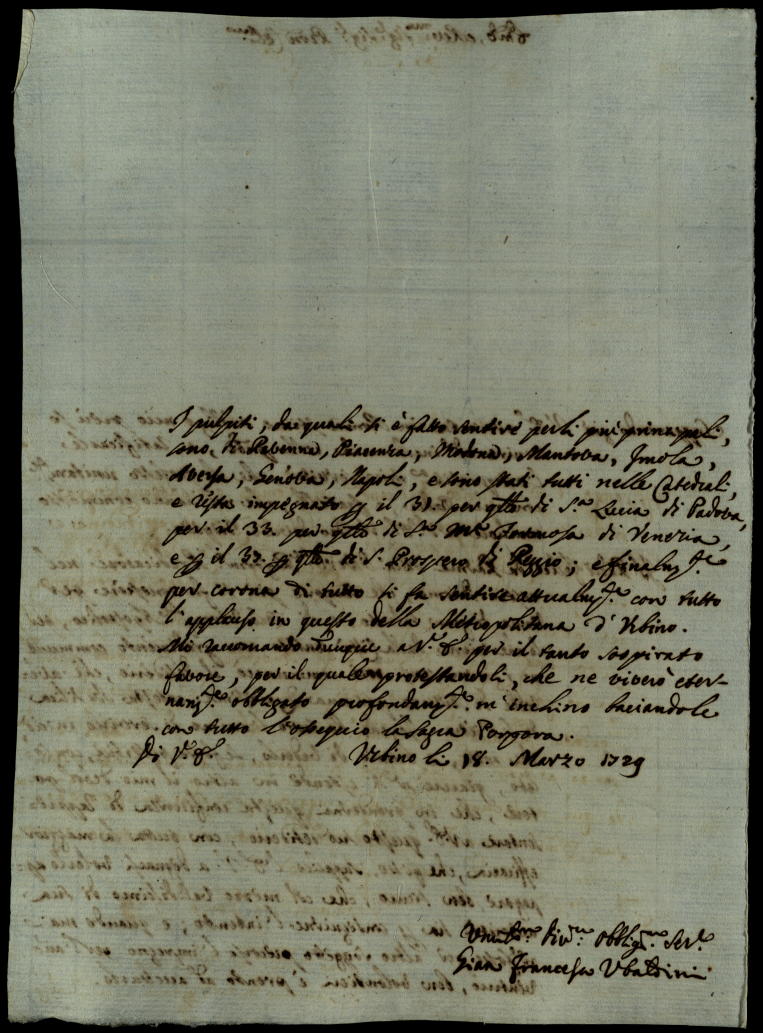 I pulpiti, da quali si è fatto sentire per li più principali,
sono, di Ravenna, Piacenza, Modona, Mantova, Imola,
Aversa, Genova, Napoli, e sono stati tutti nelle Catedrali,
e resta impegnato p il 31. per qto di S.ta Lucia di Padova,
per il 33. per qto di S.ta M.a Formosa di Venezia,
e p il 32. p qto di S. Prospero di Reggio; e finalm.te
per corona di tutto si fa sentire attualm.te con tutto
l'applauso in questo della Metropolitana d'Urbino.
Mi raccomando dunque a V.a E.a per il tanto sospirato
favore, per il quale protestandoli, che ne viverò eter-
nam.te obbligato profondam.te m'inchino baciandole
con tutto l'ossequio la Sagra Porpora.
Di V.a E.a Urbino li 18. Marzo 1729
Umil.mo Div.mo Obblig.mo Ser.e
Gian Francesco Ubaldini